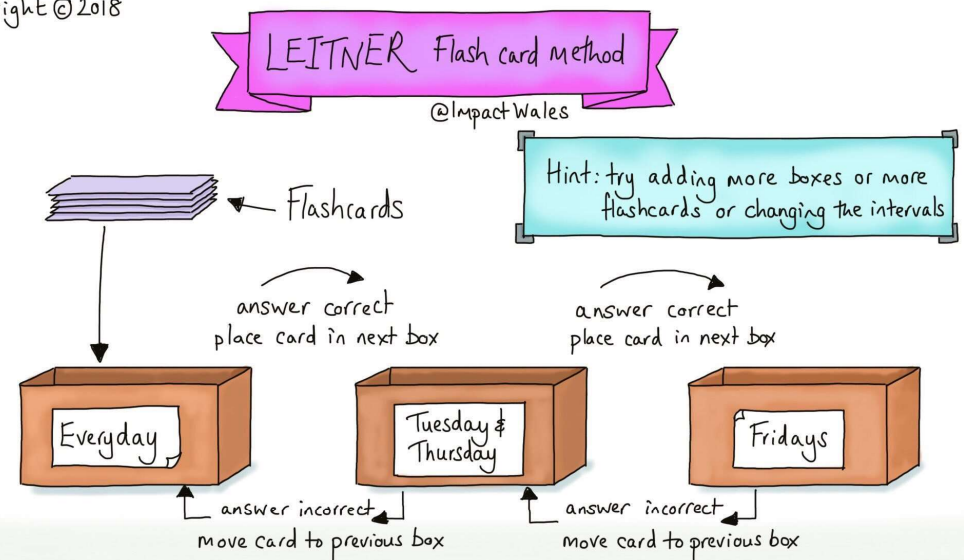 ight © 2018
LEITNER Flash card method
@ImpactWales
Hint: try adding more boxes or more
flashcards or changing the intervals
Flashcards
answer correct
place card in next box
answer correct
place card in next box
Everyday
Tuesday &
Thursday
Fridays
answer incorrect
move card to previous box
answer incorrect
move card to previous box